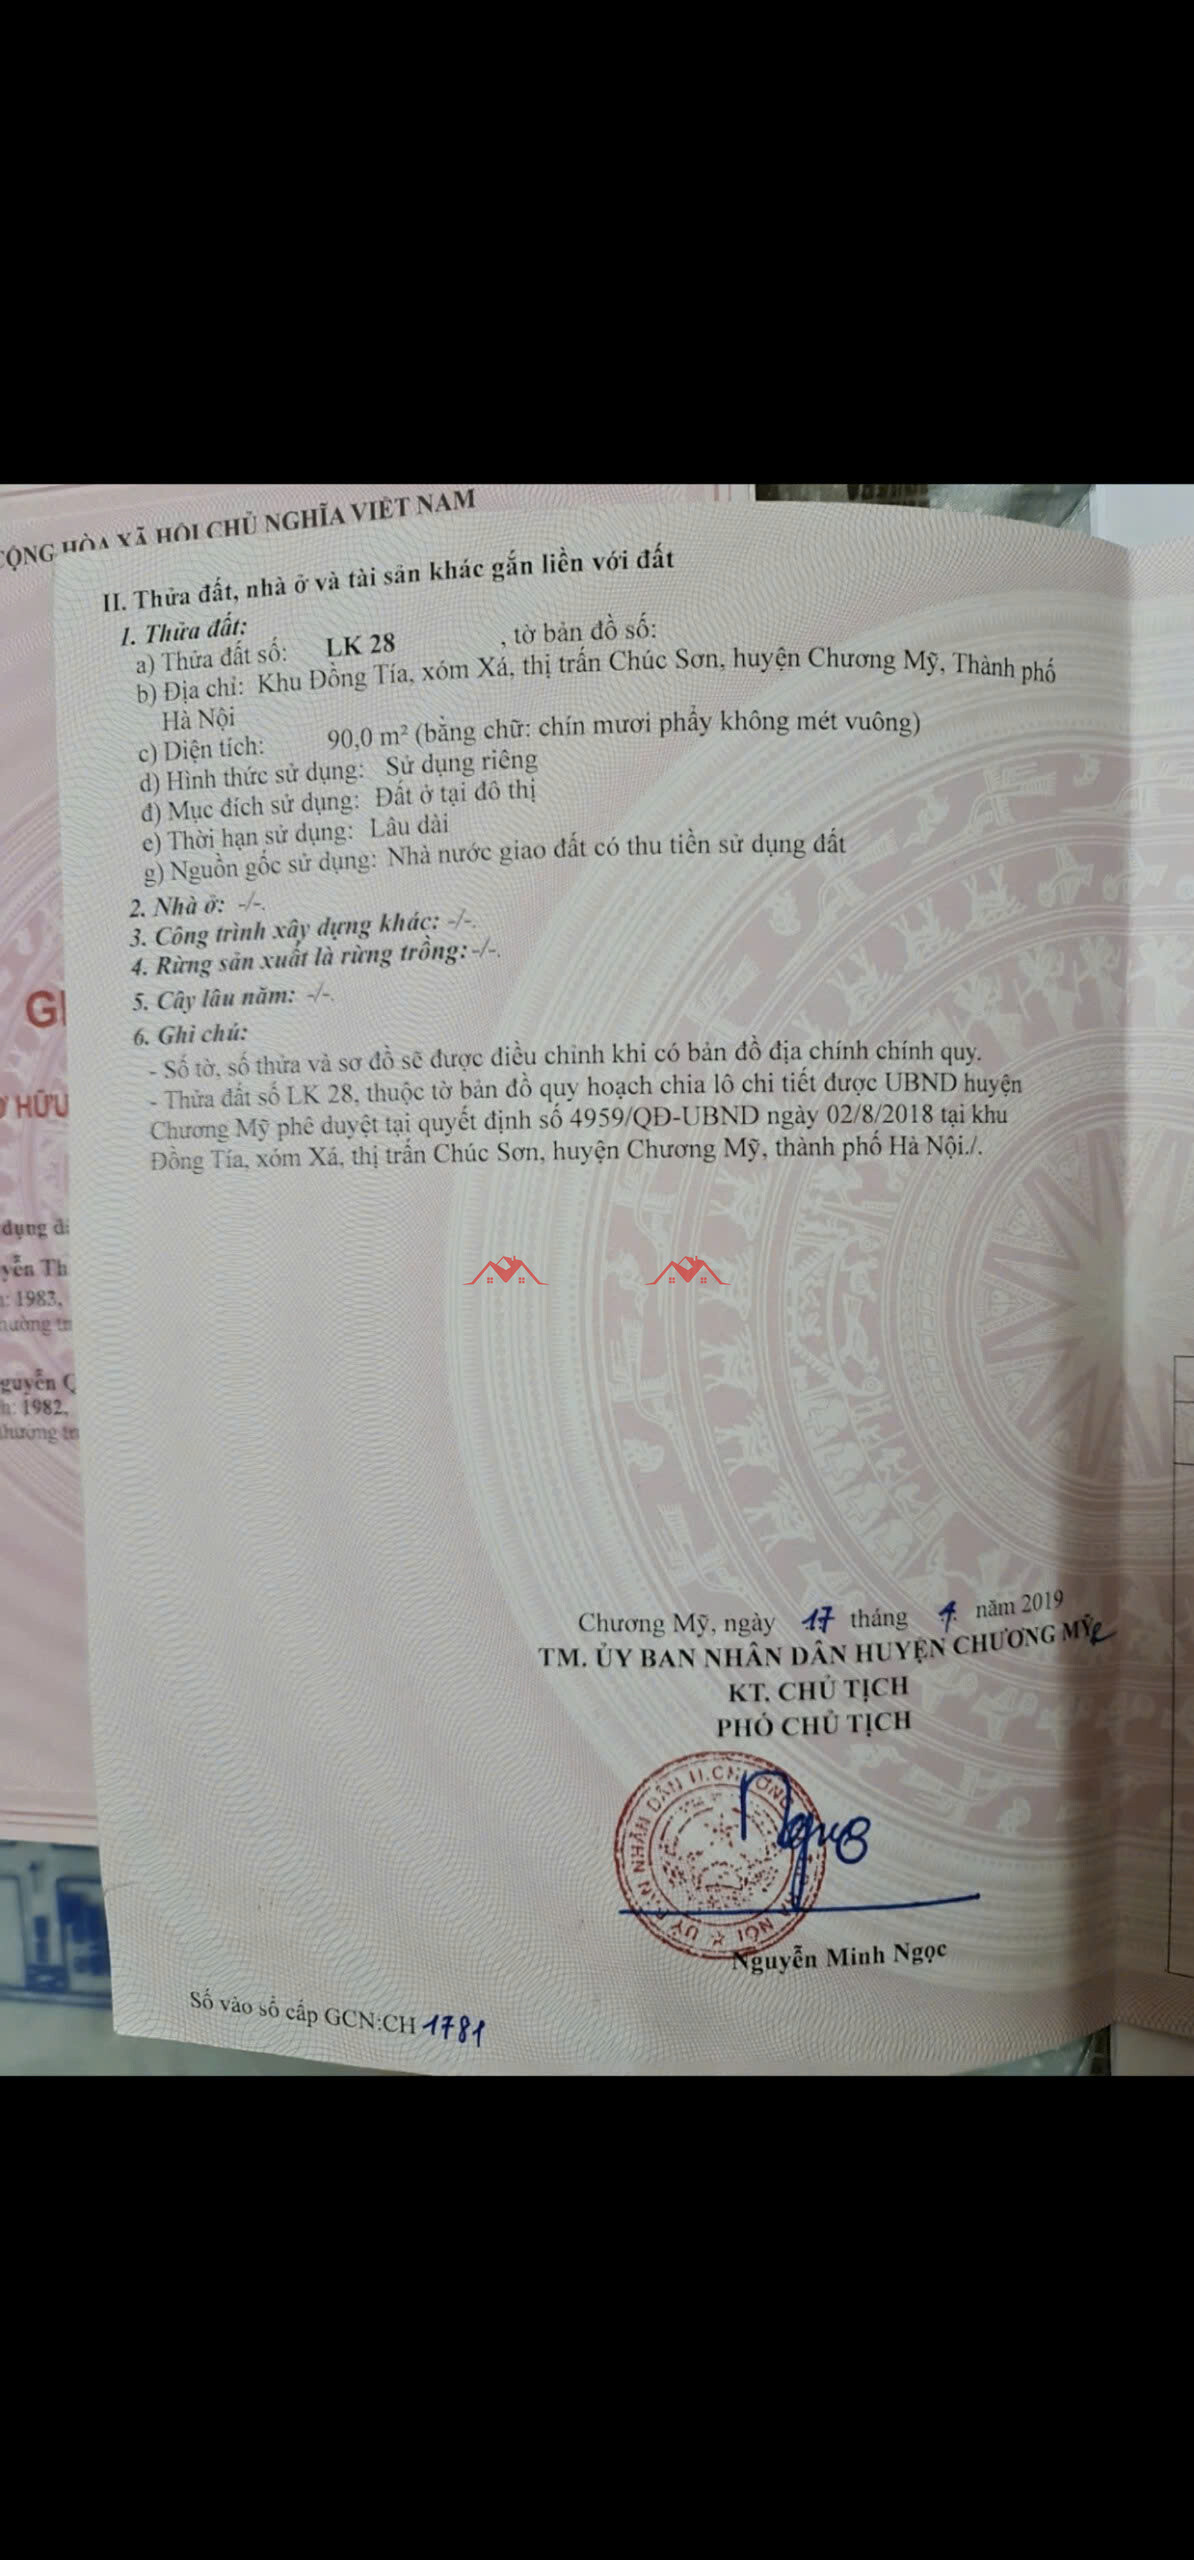 CỘNG HÒA XÃ HỘI CHỦ NGHĨA VIỆT NAM
II. Thửa đất, nhà ở và tài sản khác gắn liền với đất
1. Thửa đất:
a) Thửa đất số: LK 28 , tờ bản đồ số:
b) Địa chỉ: Khu Đồng Tía, xóm Xá, thị trấn Chúc Sơn, huyện Chương Mỹ, Thành phố
Hà Nội
c) Diện tích: 90,0 m² (bằng chữ: chín mươi phẩy không mét vuông)
d) Hình thức sử dụng: Sử dụng riêng
đ) Mục đích sử dụng: Đất ở tại đô thị
e) Thời hạn sử dụng: Lâu dài
g) Nguồn gốc sử dụng: Nhà nước giao đất có thu tiền sử dụng đất
2. Nhà ở: -/-.
3. Công trình xây dựng khác: -/-.
4. Rừng sản xuất là rừng trồng: -/-.
5. Cây lâu năm: -/-.
6. Ghi chú:
- Số tờ, số thửa và sơ đồ sẽ được điều chỉnh khi có bản đồ địa chính chính quy.
- Thửa đất số LK 28, thuộc tờ bản đồ quy hoạch chia lô chi tiết được UBND huyện
Chương Mỹ phê duyệt tại quyết định số 4959/QĐ-UBND ngày 02/8/2018 tại khu
Đồng Tía, xóm Xá, thị trấn Chúc Sơn, huyện Chương Mỹ, thành phố Hà Nội./.
GI
HỮU
dụng đ
yễn Th
: 1983,
hường tr
guyễn Q
h: 1982,
thường tr
Chương Mỹ, ngày 17 tháng 7 năm 2019
TM. ỦY BAN NHÂN DÂN HUYỆN CHƯƠNG MỸ
KT. CHỦ TỊCH
PHÓ CHỦ TỊCH
Nguyễn Minh Ngọc
Số vào sổ cấp GCN:CH 1781